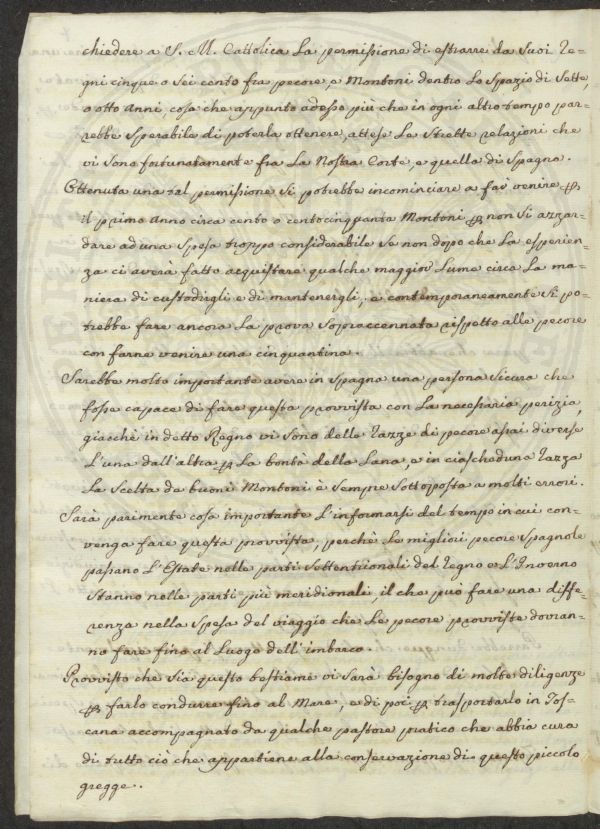 chiedere a S. M. Cattolica La permissione di estrarre da Suoi Re=
gni cinque o Sei cento fra pecore, e Montoni dentro Lo Spazio di Sette,
o otto Anni, cosa che appunto adesso più che in ogni altro tempo par=
rebbe Sperabile di poterla ottenere, attese Le Strette relazioni che
vi Sono fortunatamente fra La Nostra Corte, e quella di Spagna.
Ottenuta una tal permissione Si potrebbe incominciare a far venire ꝑ
il primo Anno circa cento o centocinquanta Montoni ꝑ non Si azzar=
dare ad una Spesa troppo considerabile Se non dopo che La esperien=
za ci averà fatto acquistare qualche maggior Lume circa La ma=
niera di custodirgli e di mantenergli, e contemporaneamente Si po=
trebbe fare ancora La prova Sopraccennata rispetto alle pecore
con farne venire una cinquantina.
Sarebbe molto importante avere in Spagna una persona Sicura che
fosse capace di fare questa provvista con La necessaria perizia,
giacchè in detto Regno vi Sono delle Razze di pecore assai diverse
L'una dall'altra ꝑ La bontà della Lana, e in ciascheduna Razza
La Scelta da buoni Montoni è Sempre Sottoposta a molti errori.
Sarà parimente cosa importante L'informarsi del tempo in cui con=
venga fare questa provvista, perchè Le migliori pecore Spagnole
passano L'Estate nelle parti Settentrionali del Regno e L'Inverno
Stanno nelle parti più meridionali, il che può fare una diffe=
renza nella Spesa del viaggio che Le pecore provviste dovran=
no fare fino al Luogo dell'imbarco.
Provvisto che Sia questo bestiame vi Sarà bisogno di molte diligenze
ꝑ farlo condurre fino al Mare, e di poi ꝑ trasportarlo in Tos=
cana accompagnato da qualche pastore pratico che abbia cura
di tutto ciò che appartiene alla conservazione di questo piccolo
gregge..